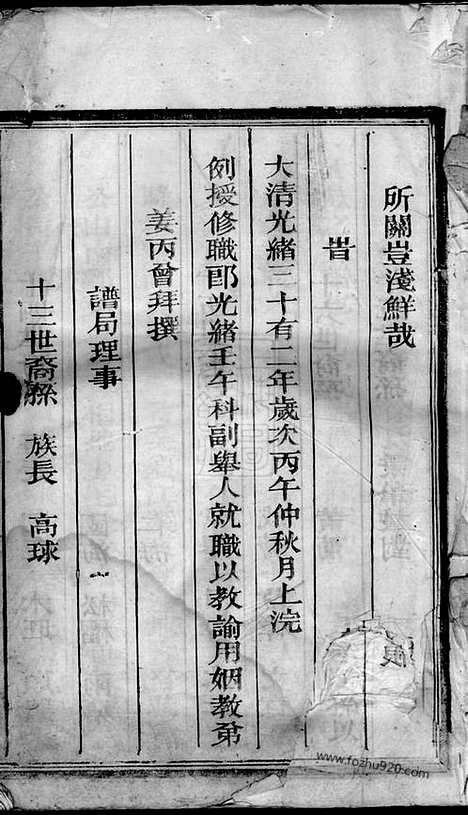 所關豈淺鮮哉
旹
大清光緒三十有二年歲次丙午仲秋月上浣
例授修職郎光緒壬午科副舉人就職以教諭用姻教弟
姜丙曾拜撰
譜局理事
十三世裔孫 族長 高球
www.fozhu920.com